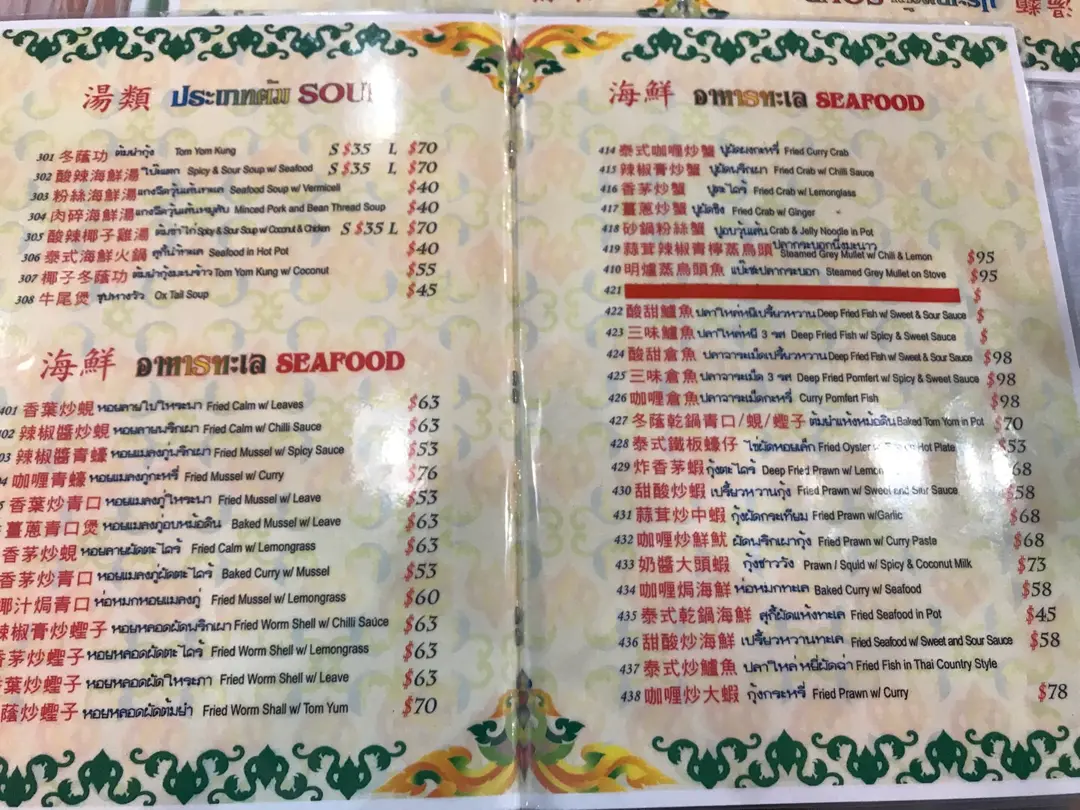 湯類 ประเภทต้ม SOU
301 冬蔭功 ต้มยำกุ้ง Tom Yom Kung S $35 L $70
302 酸辣海鮮湯 โป๊แตก Spicy & Sour Soup w/ Seafood S $35 L $70
303 粉絲海鮮湯 แกงจืดวุ้นเส้นทะเล Seafood Soup w/ Vermicell $40
304 肉碎海鮮湯 แกงจืดวุ้นเส้นหมูสับ Minced Pork and Bean Thread Soup $40
305 酸辣椰子雞湯 ต้มข่าไก่ Spicy & Sour Soup w/ Coconut & Chicken S $35 L $70
306 泰式海鮮火鍋 สุกี้น้ำทะเล Seafood in Hot Pot $40
307 椰子冬蔭功 ต้มยำกุ้งมะพร้าว Tom Yam Kung w/ Coconut $55
308 牛尾煲 ซุปหางวัว Ox Tail Soup $45
海鮮 อาหารทะเล SEAFOOD
401 香葉炒蜆 หอยลายใบโหระพา Fried Calm w/ Leaves $63
402 辣椒醬炒蜆 หอยลายพริกเผา Fried Calm w/ Chilli Sauce $63
03 辣椒醬青蠔 หอยแมลงภู่พริกเผา Fried Mussel w/ Spicy Sauce $53
4 咖喱青蠔 หอยแมลงภู่กะหรี่ Fried Mussel w/ Curry $76
香葉炒青口 หอยแมลงภู่โหระพา Fried Mussel w/ Leave $53
薑蔥青口煲 หอยแมลงภู่อบหม้อดิน Baked Mussel w/ Leave $63
香茅炒蜆 หอยลายผัดตะไคร้ Fried Calm w/ Lemongrass $63
香茅炒青口 หอยแมลงภู่ผัดตะไคร้ Baked Curry w/ Mussel $53
椰汁焗青口 ห่อหมกหอยแมลงภู่ Fried Mussel w/ Lemongrass $60
辣椒膏炒蟶子 หอยหลอดผัดพริกเผา Fried Worm Shell w/ Chilli Sauce $63
香茅炒蟶子 หอยหลอดผัดตะไคร้ Fried Worm Shell w/ Lemongrass $63
香葉炒蟶子 หอยหลอดผัดโหระพา Fried Worm Shell w/ Leave $63
蔭炒蟶子 หอยหลอดผัดต้มยำ Fried Worm Shall w/ Tom Yum $70
海鮮 อาหารทะเล SEAFOOD
414 泰式咖喱炒蟹 ปูผัดผงกะหรี่ Fried Curry Crab
415 辣椒膏炒蟹 ปูผัดพริกเผา Fried Crab w/ Chilli Sauce
416 香茅炒蟹 ปูตะไคร้ Fried Crab w/ Lemonglass
417 薑蔥炒蟹 ปูผัดขิง Fried Crab w/ Ginger
418 砂鍋粉絲蟹 ปูอบวุ้นเส้น Crab & Jelly Noodle in Pot
419 蒜茸辣椒青檸蒸烏頭 ปลากระบอกนึ่งมะนาว Steamed Grey Mullet w/ Chili & Lemon $95
410 明爐蒸烏頭魚 แป๊ะซะปลากระบอก Steamed Grey Mullet on Stove $95
421 $
422 酸甜鱸魚 ปลาไหล่หมีเปรี้ยวหวาน Deep Fried Fish w/ Sweet & Sour Sauce $
423 三味鱸魚 ปลาไหล่หมี 3 รส Deep Fried Fish w/ Spicy & Sweet Sauce $
424 酸甜倉魚 ปลาจาระเม็ดเปรี้ยวหวาน Deep Fried Fish w/ Sweet & Sour Sauce $98
425 三味倉魚 ปลาจาระเม็ด 3 รส Deep Fried Pomfert w/ Spicy & Sweet Sauce $98
426 咖喱倉魚 ปลาจาระเม็ดกะหรี่ Curry Pomfert Fish $98
427 冬蔭乾鍋青口/蜆/蟶子 ต้มยำแห้งหม้อดิน Baked Tom Yom in Pot $70
428 泰式鐵板蠔仔 ไข่ผัดหอยเล็ก Fried Oyster Hot Plate $53
429 炸香茅蝦 กุ้งตะไคร้ Deep Fried Prawn w/ Lemon 68
430 甜酸炒蝦 เปรี้ยวหวานกุ้ง Fried Prawn w/ Sweet and Sour Sauce $58
431 蒜茸炒中蝦 กุ้งผัดกระเทียม Fried Prawn w/Garlic $68
432 咖喱炒鮮魷 ผัดพริกเผากุ้ง Fried Prawn w/ Curry Paste $68
433 奶醬大頭蝦 กุ้งชาววัง Prawn / Squid w/ Spicy & Coconut Milk $73
434 咖喱焗海鮮 ห่อหมกทะเล Baked Curry w/ Seafood $58
435 泰式乾鍋海鮮 สุกี้ผัดแห้งทะเล Fried Seafood in Pot $45
436 甜酸炒海鮮 เปรี้ยวหวานทะเล Fried Seafood w/ Sweet and Sour Sauce $58
437 泰式炒鱸魚 ปลาไหล่หมี่ผัดฉ่า Fried Fish in Thai Country Style
438 咖喱炒大蝦 กุ้งกระหรี่ Fried Prawn w/ Curry $78